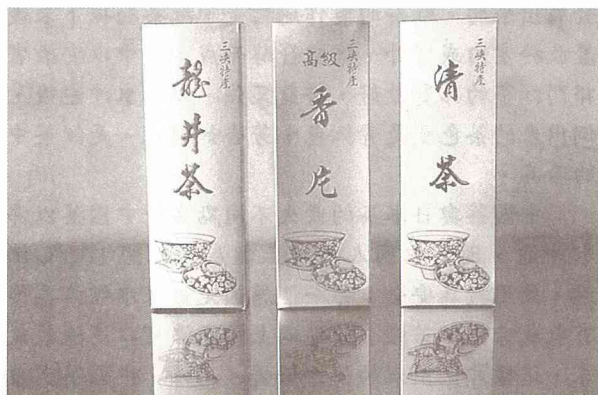 三峽特產
龍井茶
三峽特產
高級
香片
三峽特產
清茶